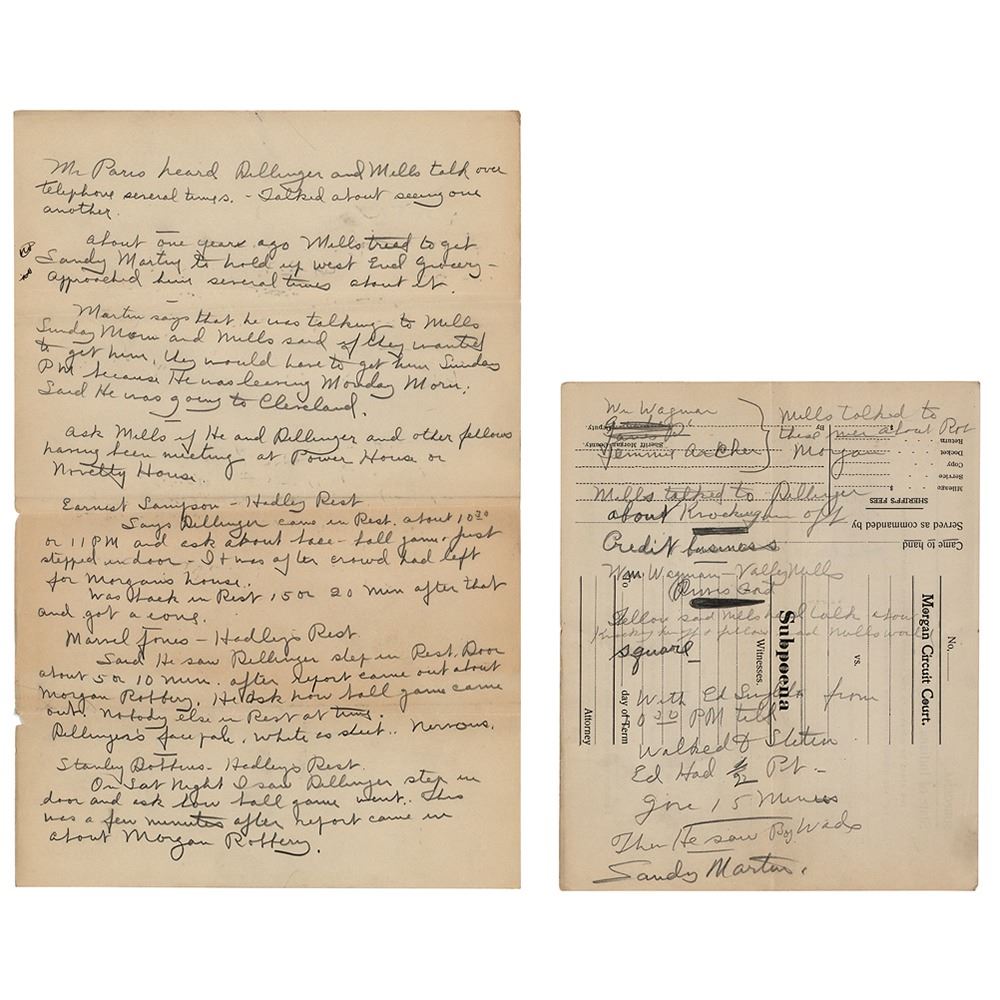 Mr Paris heard Dillinger and Mills talk over
telephone several times. - Talked about seeing one
another.
about one years ago Mills tried to get
Sandy Martin to hold up West End Grocery -
approached him several times about it.
Martin says that he was talking to Mills
Sunday Morn and Mills said if they wanted
to get him, they would have to get him Sunday
PM because He was leaving Monday Morn.
Said He was going to Cleveland.
ask Mills if He and Dillinger and other fellows
having been meeting at Power House or
Novelty House.
Earnest Sampson - Hadley Rest
Says Dillinger came in Rest. about 10 30
or 11 PM and ask about base-ball game, just
stepped in door - It was after crowd had left
for Morgan's house.
Was back in Rest 15 or 20 Min after that
and got a cone.
Marvel Jones - Hadley's Rest
Said He saw Dillinger step in Rest. Door
about 5 or 10 Min. after report came out about
Morgan Robbery. He ask how ball game came
out. Nobody else in Rest at time.
Dillinger's face pale, white as sheet.. Nervous.
Stanley Bothins - Hadley's Rest.
On Sat Night I saw Dillinger step in
door and ask how ball game went. This
was a few minutes after report came in
about Morgan Robbery.
Wm Wagman
Jimmie Archer
Mills talked to
these men about Rob
Morgan
Mills talked to Dillinger
about Knocking off
Credit business
Wm Wagman - Mills
Fellow said Mills talk about
Knocking and Mills
square
With Ed from
PM till
Walked
Ed Had 1/2 Pt -
gone 15 Minues
Then He saw Wade
Sandy Martin.
No.
Morgan Circuit Court.
vs.
Subpoena
Witnesses.
No
day of Term
Attorney
Came to hand
Served as commanded by
SHERIFF'S FEES
Mileage
Service
Copy
Docket
Return
$
By
Sheriff Morgan County
Deputy